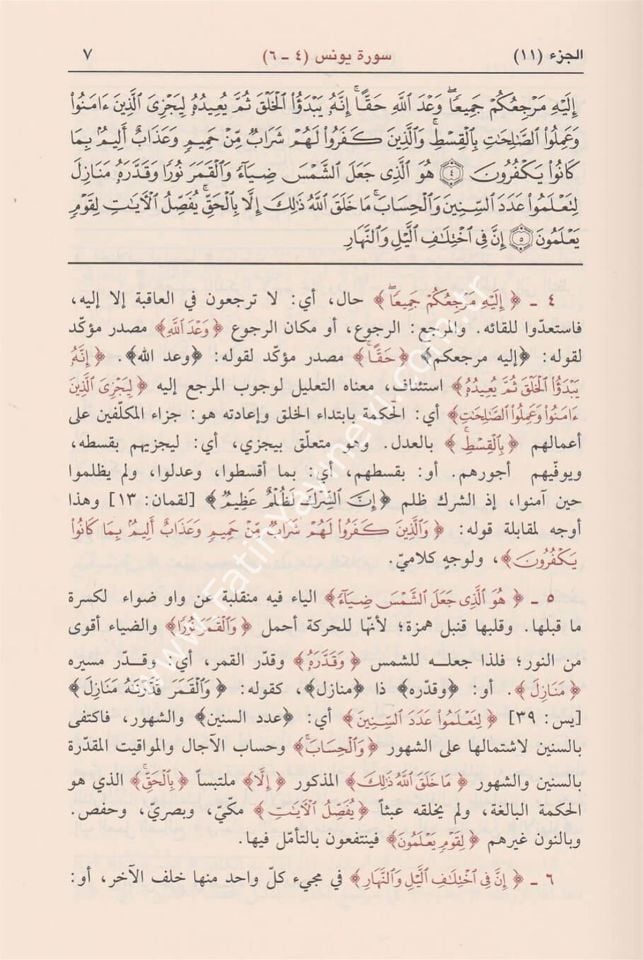 الجزء (١١) سورة يونس (٤ ـ ٦) ٧
إِلَيْهِ مَرْجِعُكُمْ جَمِيعًا وَعْدَ اللَّهِ حَقًّا إِنَّهُ يَبْدَؤُا الْخَلْقَ ثُمَّ يُعِيدُهُ لِيَجْزِىَ الَّذِينَ ءَامَنُوا
وَعَمِلُوا الصَّالِحَاتِ بِالْقِسْطِ وَالَّذِينَ كَفَرُوا لَهُمْ شَرَابٌ مِّنْ حَمِيمٍ وَعَذَابٌ أَلِيمٌ بِمَا
كَانُوا يَكْفُرُونَ ﴿٤﴾ هُوَ الَّذِى جَعَلَ الشَّمْسَ ضِيَاءً وَالْقَمَرَ نُورًا وَقَدَّرَهُ مَنَازِلَ
لِتَعْلَمُوا عَدَدَ السِّنِينَ وَالْحِسَابَ مَا خَلَقَ اللَّهُ ذَلِكَ إِلَّا بِالْحَقِّ يُفَصِّلُ الْآيَاتِ لِقَوْمٍ
يَعْلَمُونَ ﴿٥﴾ إِنَّ فِى اخْتِلَافِ الَّيْلِ وَالنَّهَارِ
٤ ـ ﴿إِلَيْهِ مَرْجِعُكُمْ جَمِيعًا﴾ حال، أي: لا ترجعون في العاقبة إلا إليه،
فاستعدّوا للقائه. والمرجع: الرجوع، أو مكان الرجوع ﴿وَعْدَ اللَّهِ﴾ مصدر مؤكّد
لقوله: ﴿إليه مرجعكم﴾ ﴿حَقًّا﴾ مصدر مؤكّد لقوله: ﴿وعد الله﴾. ﴿إِنَّهُ
يَبْدَؤُا الْخَلْقَ ثُمَّ يُعِيدُهُ﴾ استئناف، معناه التعليل لوجوب المرجع إليه ﴿لِيَجْزِىَ الَّذِينَ
ءَامَنُوا وَعَمِلُوا الصَّالِحَاتِ﴾ أي: الحكمة بابتداء الخلق وإعادته هو: جزاء المكلّفين على
أعمالهم ﴿بِالْقِسْطِ﴾ بالعدل. وهو متعلّق بيجزي، أي: ليجزيهم بقسطه،
ويوفّيهم أجورهم. أو: بقسطهم، أي: بما أقسطوا، وعدلوا، ولم يظلموا
حين آمنوا، إذ الشرك ظلم ﴿إِنَّ الشِّرْكَ لَظُلْمٌ عَظِيمٌ﴾ [لقمان: ١٣] وهذا
أوجه لمقابلة قوله: ﴿وَالَّذِينَ كَفَرُوا لَهُمْ شَرَابٌ مِّنْ حَمِيمٍ وَعَذَابٌ أَلِيمٌ بِمَا كَانُوا
يَكْفُرُونَ﴾، ولوجهٍ كلاميّ.
٥ ـ ﴿هُوَ الَّذِى جَعَلَ الشَّمْسَ ضِيَاءً﴾ الياء فيه منقلبة عن واو ضواء لكسرة
ما قبلها. وقلبها قنبل همزة؛ لأنها للحركة أحمل ﴿وَالْقَمَرَ نُورًا﴾ والضياء أقوى
من النور؛ فلذا جعله للشمس ﴿وَقَدَّرَهُ﴾ وقدّر القمر، أي: وقدّر مسيره
﴿مَنَازِلَ﴾. أو: ﴿وقدّره﴾ ذا ﴿منازل﴾، كقوله: ﴿وَالْقَمَرَ قَدَّرْنَاهُ مَنَازِلَ﴾
[يس: ٣٩] ﴿لِتَعْلَمُوا عَدَدَ السِّنِينَ﴾ أي: ﴿عدد السنين﴾ والشهور، فاكتفى
بالسنين لاشتمالها على الشهور ﴿وَالْحِسَابَ﴾ وحساب الآجال والمواقيت المقدّرة
بالسنين والشهور ﴿مَا خَلَقَ اللَّهُ ذَلِكَ﴾ المذكور ﴿إِلَّا﴾ ملتبساً ﴿بِالْحَقِّ﴾ الذي هو
الحكمة البالغة، ولم يخلقه عبثاً ﴿يُفَصِّلُ الْآيَاتِ﴾ مكّيّ، وبصريّ، وحفص.
وبالنون غيرهم ﴿لِقَوْمٍ يَعْلَمُونَ﴾ فينتفعون بالتأمّل فيها.
٦ ـ ﴿إِنَّ فِى اخْتِلَافِ الَّيْلِ وَالنَّهَارِ﴾ في مجيء كلّ واحد منها خلف الآخر، أو: